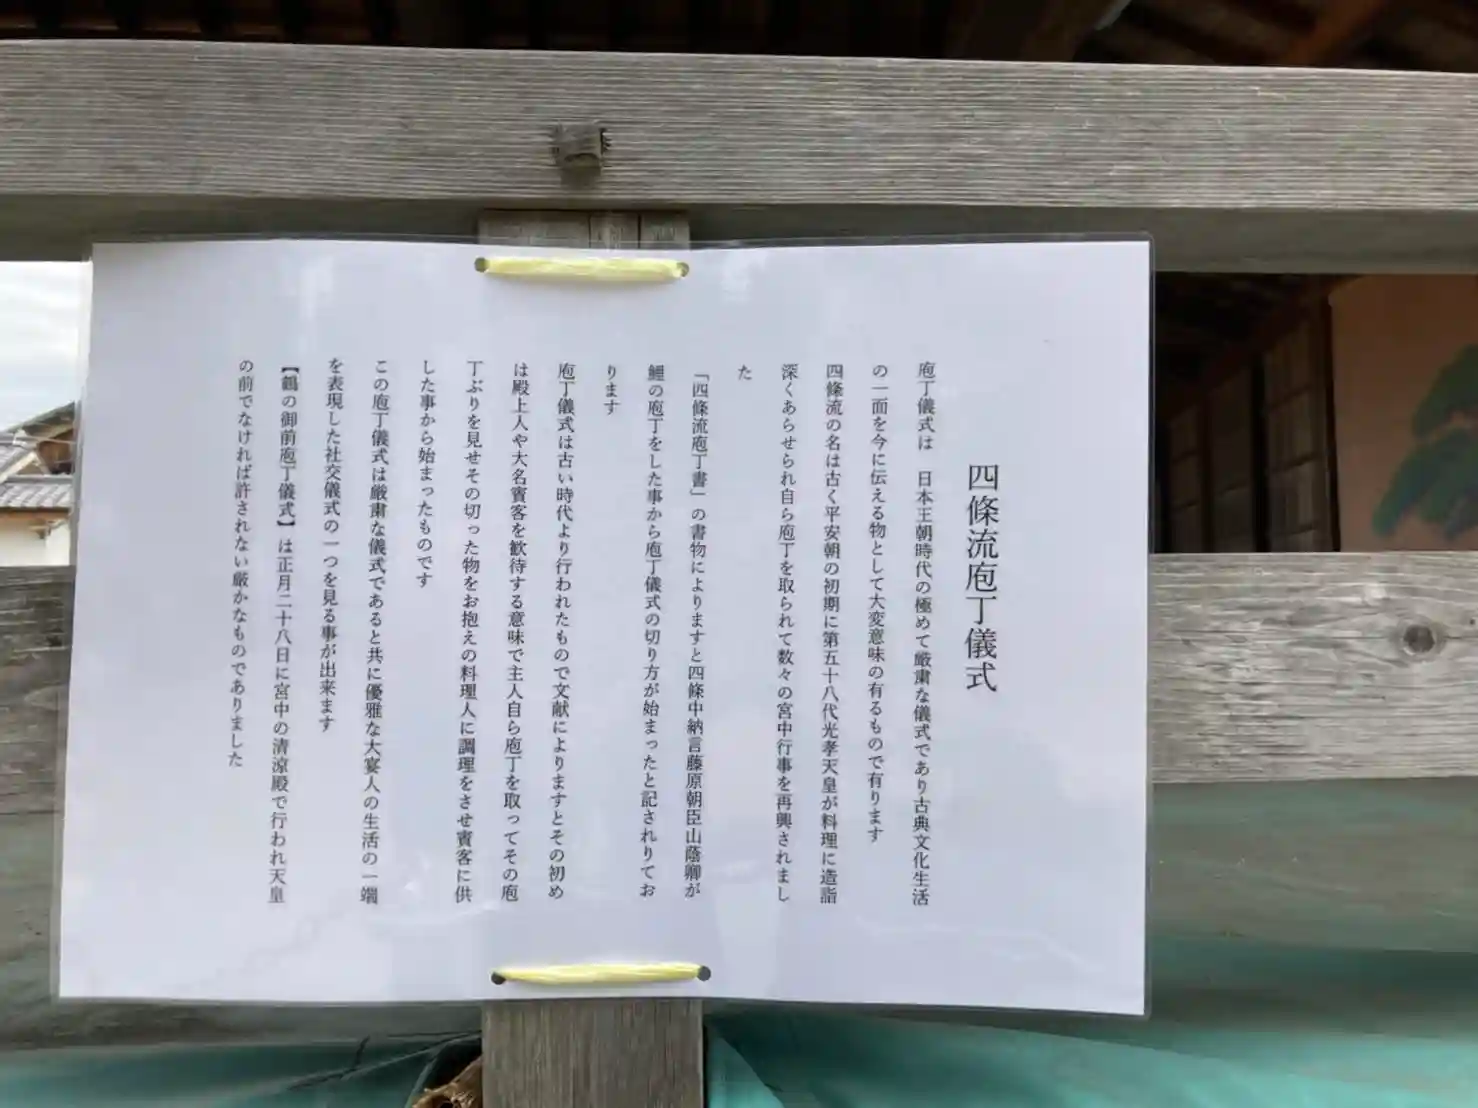 四條流庖丁儀式
庖丁儀式は　日本王朝時代の極めて厳粛な儀式であり古典文化生活
の一面を今に伝える物として大変意味の有るもので有ります
四條流の名は古く平安朝の初期に第五十八代光孝天皇が料理に造詣
深くあらせられ自ら庖丁を取られて数々の宮中行事を再興されまし
た
「四條流庖丁書」の書物によりますと四條中納言藤原朝臣山蔭卿が
鯉の庖丁をした事から庖丁儀式の切り方が始まったと記されりてお
ります
庖丁儀式は古い時代より行われたもので文献によりますとその初め
は殿上人や大名賓客を歓待する意味で主人自ら庖丁を取ってその庖
丁ぶりを見せその切った物をお抱えの料理人に調理をさせ賓客に供
した事から始まったものです
この庖丁儀式は厳粛な儀式であると共に優雅な大宴人の生活の一端
を表現した社交儀式の一つを見る事が出来ます
【鶴の御前庖丁儀式】は正月二十八日に宮中の清涼殿で行われ天皇
の前でなければ許されない厳かなものでありました